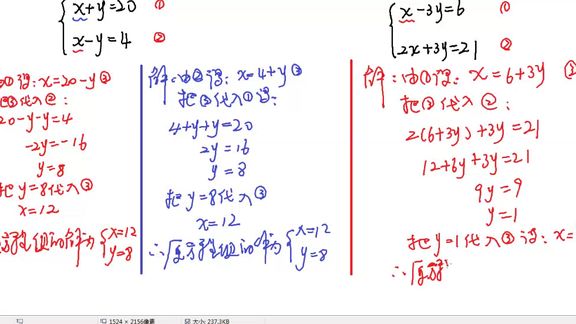 x+y=20 ①
x-y=4 ②
①得:x=20-y③
把③代入②:
20-y-y=4
-2y=-16
y=8
把y=8代入③
x=12
方程组的解为{x=12
y=8
解:由②得:x=4+y③
把③代入①得:
4+y+y=20
2y=16
y=8
把y=8代入③
x=12
∴原方程组的解为{x=12
y=8
x-3y=6 ①
2x+3y=21 ②
解:由①得:x=6+3y
把③代入②:
2(6+3y)+3y=21
12+6y+3y=21
9y=9
y=1
把y=1代入③得:x=
∴原方程
1524 × 2156像素
大小: 237.3KB